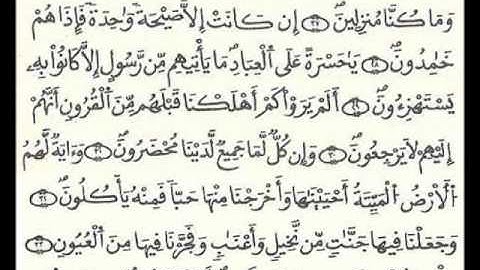 وَمَا كُنَّا مُنزِلِينَ إِن كَانَتْ إِلَّا صَيْحَةً وَٰحِدَةً فَإِذَا هُمْ
خَٰمِدُونَ يَٰحَسْرَةً عَلَى اَلْعِبَادِ مَا يَأْتِيهِم مِّن رَّسُولٍ إِلَّا كَانُواْ بِهِۦ
يَسْتَهْزِءُونَ أَلَمْ يَرَوْاْ كَمْ أَهْلَكْنَا قَبْلَهُم مِّنَ اَلْقُرُونِ أَنَّهُمْ
إِلَيْهِمْ لَا يَرْجِعُونَ وَإِن كُلٌّ لَّمَا جَمِيعٌ لَّدَيْنَا مُحْضَرُونَ وَءَايَةٌ لَّهُمُ
اُلْأَرْضُ اُلْمَيِّتَةُ أَحْيَيْنَٰهَا وَأَخْرَجْنَا مِنْهَا حَبًّا فَمِنْهُ يَأْكُلُونَ
وَجَعَلْنَا فِيهَا جَنَّٰتٍ مِّن نَّخِيلٍ وَأَعْنَٰبٍ وَفَجَّرْنَا فِيهَا مِنَ اَلْعُيُونِ